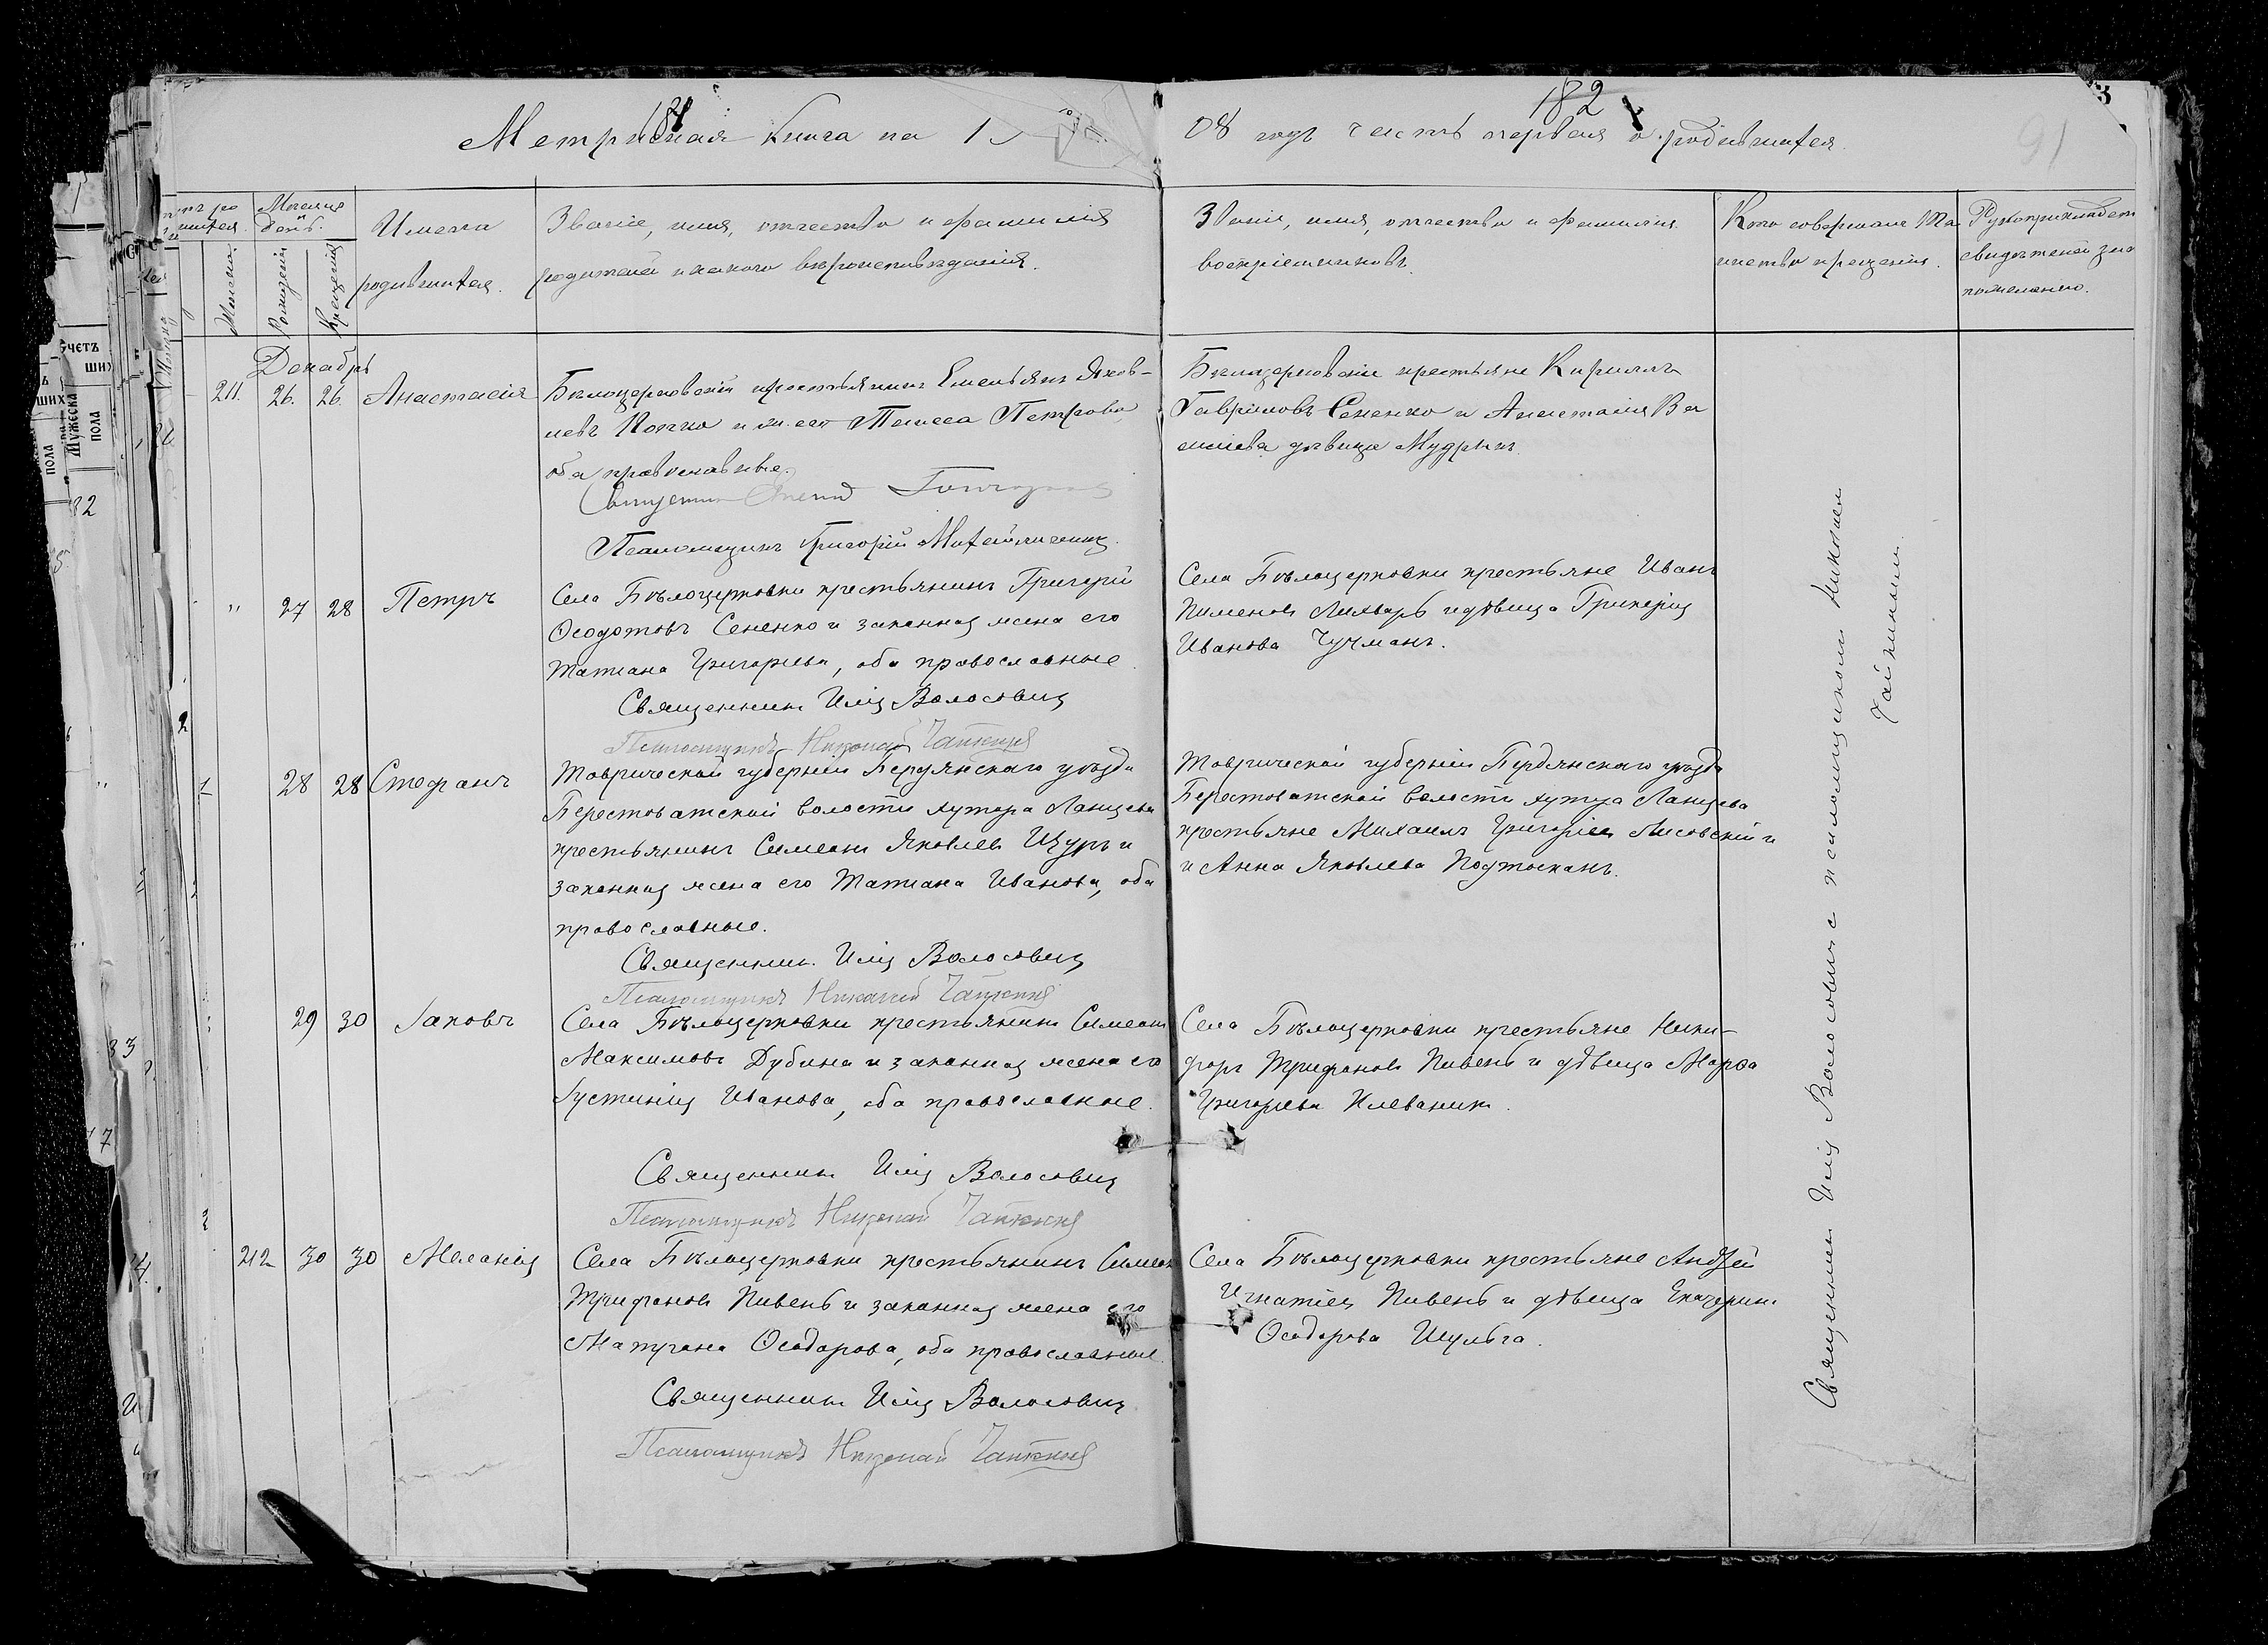 182
Метричная книга на 1
08 годъ часть первая о родившихся.
91
Мѣсяцъ
день.
Имена
родившихся.
Званіе, имя, отчество и фамилія
родителей и какого вѣроисповѣданія.
Званіе, имя, отчество и фамилія
воспріемниковъ.
Кто совершалъ Та
инство крещенія.
Рукоприкладст
свидѣтелей
по желанію.
Женска
Рожденія
Крещенія
Декабрь
211. 26. 26. Анастасія
Бѣлоцерковскій крестьянинъ Емельянъ Яков-
левъ и ж. его Петрова
оба православные.
Псаломщикъ Григорій
Бѣлоцерковскіе крестьяне Кириллъ
Гавріиловъ Сененко и Анастасія Ва
силіева дѣвица Мудрыкъ.
" 27 28 Петръ
Села Бѣлоцерковки крестьянинъ Григорій
Ѳеодотовъ Сененко и законная жена его
Татіана Григоріева, оба православные.
Священникъ Илія Волосовичъ
Псаломщикъ Николай Чайкинъ
Села Бѣлоцерковки крестьяне Иванъ
Пименовъ Лихварь и дѣвица Гликерія
Иванова Чучманъ.
28 28 Стефанъ
Таврической губерніи Бердянскаго уѣзда
Берестоватской волости хутора Ланцева
крестьянинъ Симеонъ Яковлевъ Щуръ и
законная жена его Татіана Иванова, оба
православные.
Священникъ Илія Волосовичъ
Псаломщикъ Николай Чайкинъ
Таврической губерніи Бердянскаго уѣзда
Берестоватской волости хутора Ланцева
крестьяне Михаилъ Григоріевъ Лисовскій и
и Анна Яковлева Подтоканъ.
29 30 Іаковъ
Села Бѣлоцерковки крестьянинъ Симеонъ
Максимовъ Дубина и законная жена его
Іустинія Иванова, оба православные.
Священникъ Илія Волосовичъ
Псаломщикъ Николай Чайкинъ
Села Бѣлоцерковки крестьяне Ники-
форъ Трифоновъ Пивень и дѣвица Марѳа
Григоріева Илеваникъ.
212 30 30 Меланія
Села Бѣлоцерковки крестьянинъ Симеонъ
Трифоновъ Пивень и законная жена его
Матрона Ѳеодорова, оба православные.
Священникъ Илія Волосовичъ
Псаломщикъ Николай Чайкинъ
Села Бѣлоцерковки крестьяне Андрей
Игнатіевъ Пивень и дѣвица Екатерина
Ѳеодорова Шульга.
Священникъ Илія Волосовичъ с псаломщикомъ Николаем
Чайкинымъ.